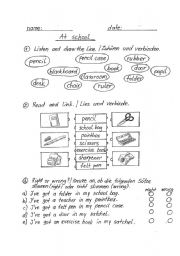 name: date:
At school
① Listen and draw the line. | Zuhören und verbinden.
pencil pencil case rubber
blackboard desk door pupil
book classroom folder
chair ruler
② Read and link. | Lies und verbinde.
pencil
school bag
paintbox
scissors
exercise book
sharpener
felt pen
③ Right or wrong?
right wrong
a) I've got a folder in my school bag.
b) I've got a teacher in my paintbox.
c) I've got a felt pen in my pencil case.
d) I've got a door in my satchel.
e) I've got an exercise book in my satchel.